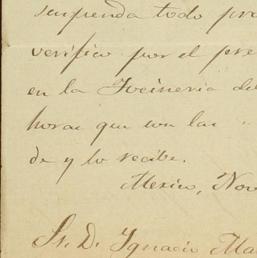 suspenda todo pro
verifico por el pre
en la Tocineria de
horas que son las
de y lo recibe.
Mexico, Nov
Sr. D. Ignacio Ma